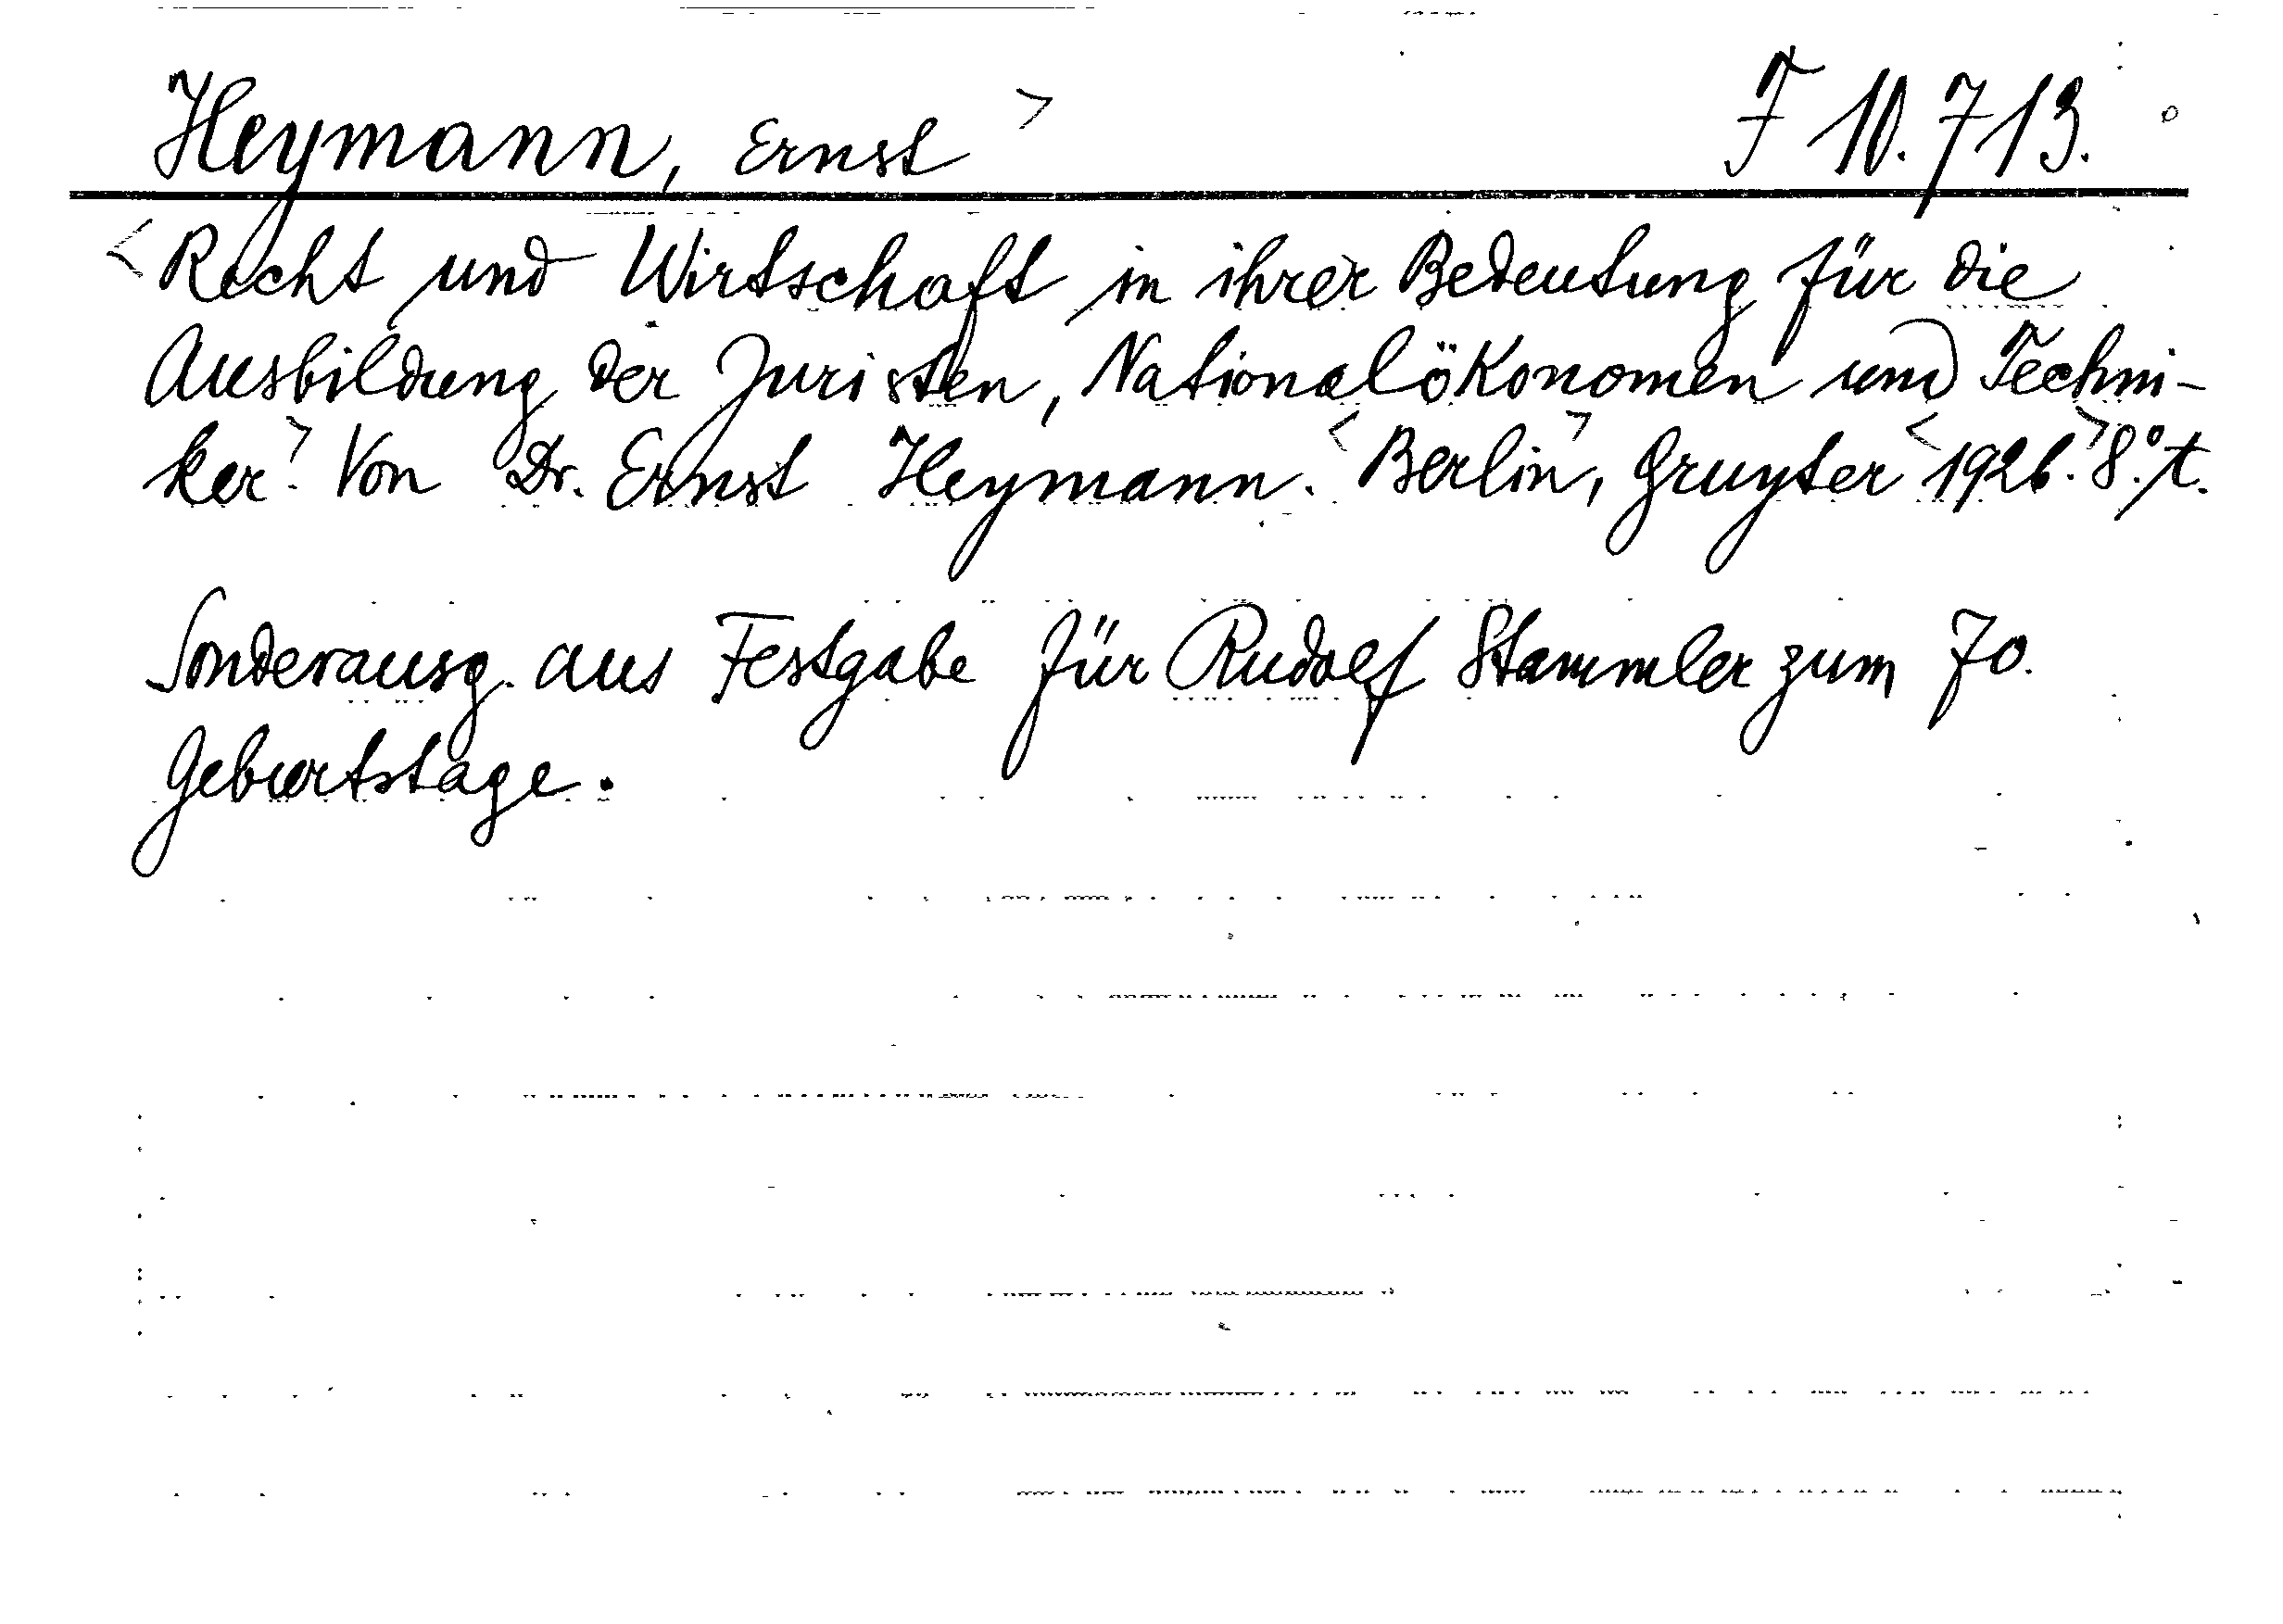 Heymann, Ernst > F 10.713.
<Recht und Wirtschaft in ihrer Bedeutung für die
Ausbildung der Juristen, Nationalökonomen und Techni-
ker>. Von Dr. Ernst Heymann. <Berlin>, Gruyter <1926.> 8.° t.
Sonderausg. aus Festgabe für Rudolf Stammler zum 70.
Geburtstage.